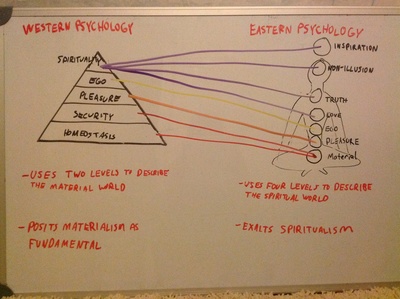 WESTERN PSYCHOLOGY
SPIRITUALITY
EGO
PLEASURE
SECURITY
HOMEOSTASIS
- USES TWO LEVELS TO DESCRIBE
THE MATERIAL WORLD
- POSITS MATERIALISM AS
FUNDAMENTAL
EASTERN PSYCHOLOGY
INSPIRATION
NON-ILLUSION
TRUTH
LOVE
EGO
PLEASURE
Material
- USES FOUR LEVELS TO DESCRIBE
THE SPIRITUAL WORLD
- EXALTS SPIRITUALISM